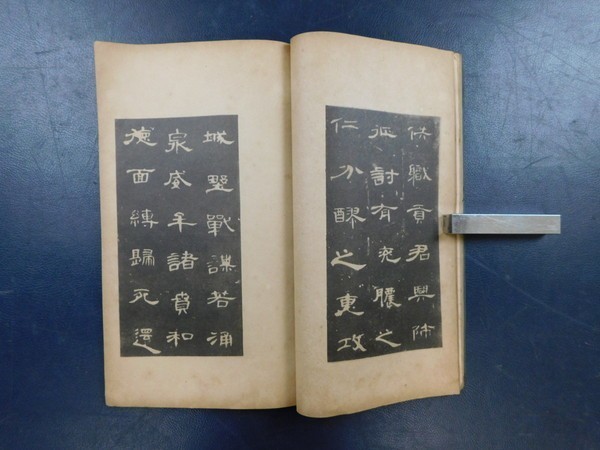 供職貢君興師
征討有兖膿之
仁分醪之惠攻
城野戰謀若涌
泉威牟諸賁和
德面縛歸死還